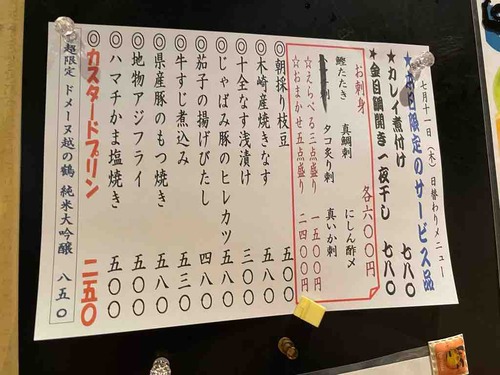 七月十一日（木）日替わりメニュー
★本日限定のサービス品
★カレイ煮付け 七八〇
★金目鯛開き一夜干し 七八〇
お刺身 各六〇〇円
鰹たたき 真鯛刺 にしん酢〆
刺 タコ炙り刺 真いか刺
☆えらべる三点盛り 一五〇〇円
☆おまかせ五点盛り 二四〇〇円
◎朝採り枝豆 五〇〇
◎木崎産焼きなす 五八〇
◎十全なす浅漬け 三〇〇
◎じゃばみ豚のヒレカツ 五八〇
◎茄子の揚げびたし 四八〇
◎牛すじ煮込み 五三〇
◎県産豚のもつ焼き 五八〇
◎地物アジフライ 五〇〇
◎ハマチかま塩焼き 五〇〇
◎カスタードプリン 二五〇
◎超限定 ドメーヌ越の鶴 純米大吟醸 八五〇